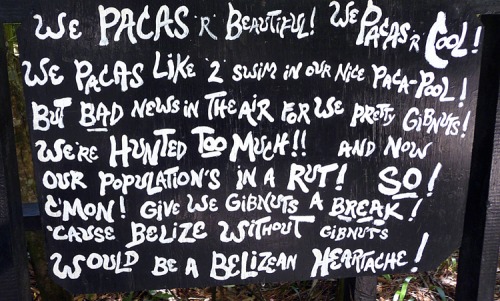 We PACAS 'R' BEAUTiFUL! We PACAS 'R' COOL!
We PACAS LiKE '2' SWiM iN OUR NiCE PACA-POOL!
BUT BAD NEWS iN THE AiR FOR WE PRETTY GiBNUTS!
WE'RE HUNTED TOO MUCH!! AND NOW
OUR POPULATiON'S iN A RUT! SO!
C'MON! GiVE WE GiBNUTS A BREAK!
'CAUSE BELiZE WiTHOUT GiBNUTS
WOULD BE A BELiZEAN HEARTACHE!